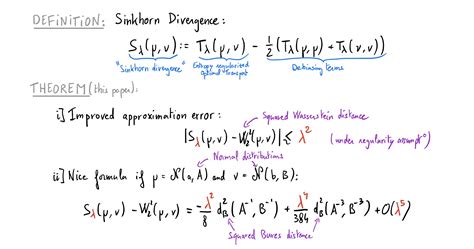 DEFINITION: Sinkhorn Divergence:
S_λ(μ,ν) := T_λ(μ,ν) - 1/2 (T_λ(μ,μ) + T_λ(ν,ν))
"Sinkhorn divergence" Entropy regularized Optimal Transport Debiasing terms
THEOREM (this paper):
i] Improved approximation error:
Squared Wasserstein distance
|S_λ(μ,ν) - W₂²(μ,ν)| ≲ λ² (under regularity assumptº)
Normal distributions
ii] Nice formula if μ = N(a,A) and ν = N(b,B):
S_λ(μ,ν) - W₂²(μ,ν) = -λ²/8 d_B²(A⁻¹,B⁻¹) + λ⁴/384 d_B²(A⁻³,B⁻³) + O(λ⁵)
Squared Bures distance